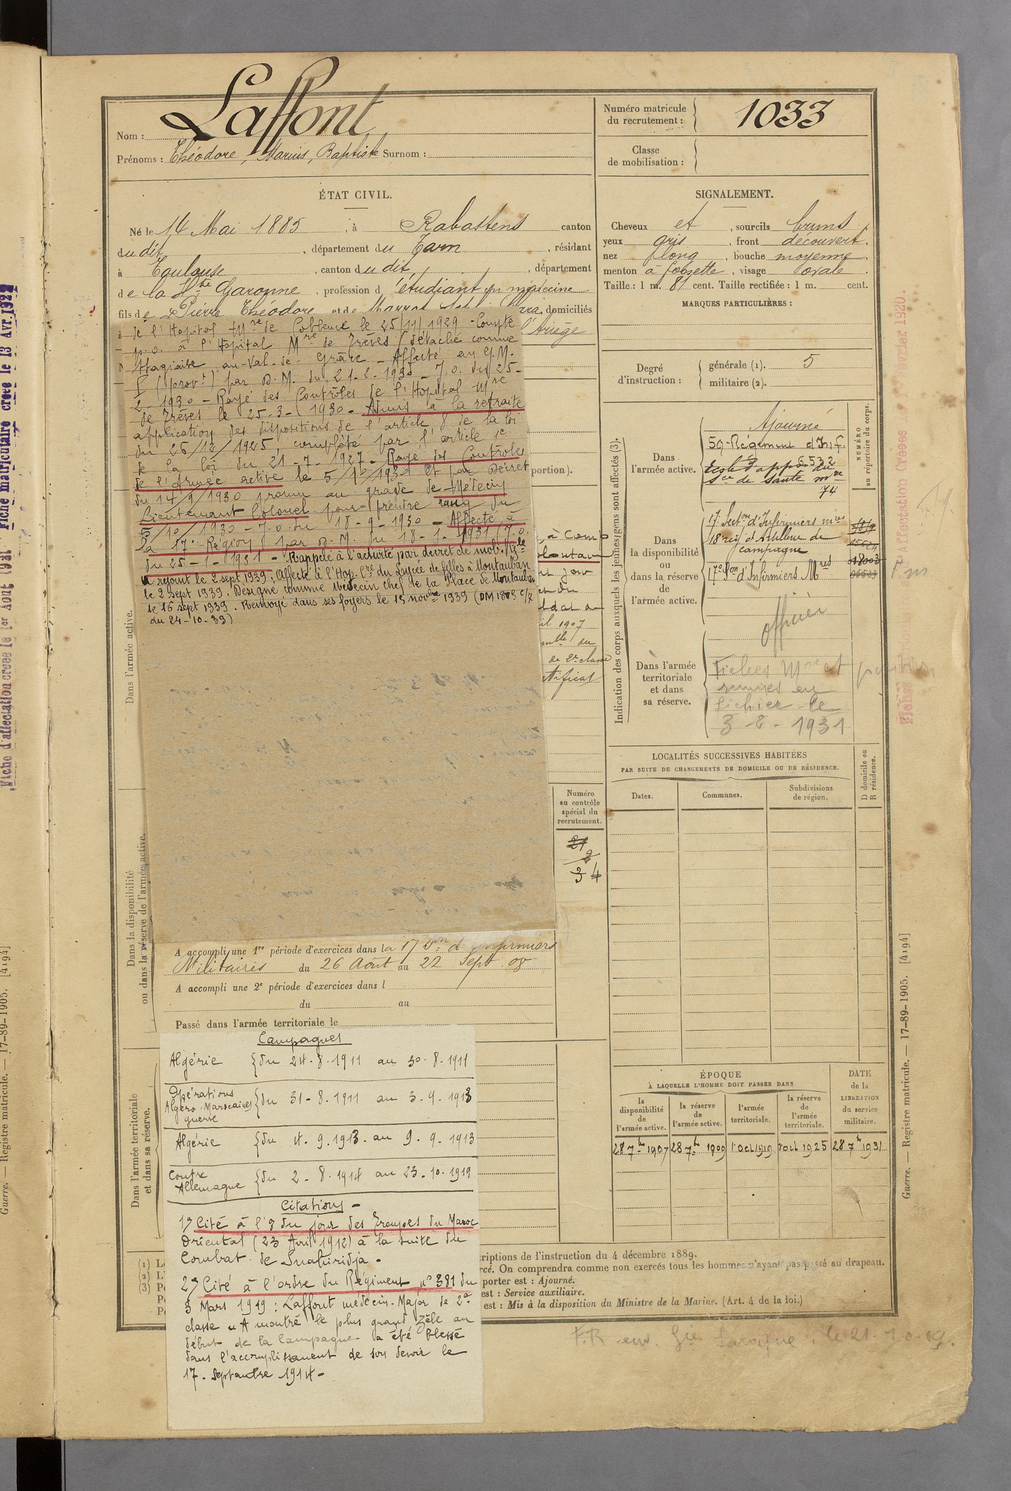 Nom : Laffont
Prénoms : Théodore, Marius, Baptiste Surnom :
Numéro matricule du recrutement : 1033
Classe de mobilisation :
ÉTAT CIVIL.
Né le 14 Mai 1885, à Rabastens canton
du dit, département du Tarn, résidant
à Toulouse, canton du dit, département
de la Hte Garonne, profession d'étudiant en médecine
fils de Pierre Théodore et de domiciliés
l'Ariège
SIGNALEMENT.
Cheveux et, sourcils bruns
yeux gris, front découvert
nez long, bouche moyenne
menton à fossette, visage ovale
Taille : 1 m. 81 cent. Taille rectifiée : 1 m. cent.
MARQUES PARTICULIÈRES :
Degré d'instruction : générale (1). 5
militaire (2).
de l'Hopital Mre de Coblence le 25/11/1929 - Compte
à l'Hopital Mre de Trèves (détaché comme
Stagiaire au Val-de-Grâce - Affecté au G.M.
P (provt) par D.M. du 21-2-1930 - J.O. du 25-
2-1930 - Rayé des Contrôles de l'Hopital Mre
de Trèves le 25-3-1930 - Admis à la retraite
application des dispositions de l'article de la loi
du 26/12/1925, complété par l'article
de la loi du 21-7-1927 - Rayé des Contrôles
de l'Armée active le Par Décret
du 14/9/1930 promu au grade de Médecin
Lieutenant Colonel pour prendre rang du
1930 - J.O. du 18-9-1930 - Affecté à
la 17e Région par D.M. du 18-1-1931 (J.O.
du 25-1-1931 - Rappelé à l'activité par décret de mob. Gle
a rejoint le 2 sept 1939, Affecté à l'Hop. du Lycée de filles à Montauban
le 2 Sept 1939. Désigné comme Médecin chef de la Place de Montauban
le 16 sept 1939. Renvoyé dans ses foyers le 15 novbre 1939 (DM 1808 c/7
du 24-10-39)
portion).
Indication des corps auxquels les jeunes gens sont affectés (3).
NUMÉRO au répertoire du corps.
Dans l'armée active.
Ajourné
59e Régiment d'Inf.
6532
de santé mre
74
Dans la disponibilité ou dans la réserve de l'armée active.
17e Section d'Infirmiers mres
18e régt d'Artillerie de campagne
17e Son d'Infirmiers Mres
officier
Dans l'armée territoriale et dans sa réserve.
Fiches Mle et position
remises au
fichier le
3-8-1931
LOCALITÉS SUCCESSIVES HABITÉES
PAR SUITE DE CHANGEMENTS DE DOMICILE OU DE RÉSIDENCE.
Dates.
Communes.
Subdivisions de région.
D domicile ou R résidence.
Numéro au contrôle spécial du recrutement.
Dans l'armée active.
Dans la disponibilité ou dans la réserve de l'armée active.
A accompli une 1re période d'exercices dans la 17e Son d'Infirmiers
Militaires du 26 Août au 22 Sept 08
A accompli une 2e période d'exercices dans l
du au
Passé dans l'armée territoriale le
Dans l'armée territoriale et dans sa réserve.
Campagnes
Algérie { du 24-8-1911 au 30-8-1911
Opérations Algéro-Marocaines guerre { du 31-8-1911 au 3-9-1913
Algérie { du 4-9-1913 au 9-9-1913
Contre Allemagne { du 2-8-1914 au 23-10-1919
Citations -
1°) Cité à l'O du jour des Troupes du Maroc
Oriental (23 Avril 1912) à la suite du
Combat de
2°) Cité à l'ordre du Régiment n° 381 du
3 Mars 1919 : Laffont médecin-Major de 2e
classe "A montré le plus grand zèle au
début de la campagne - a été blessé
dans l'accomplissement de son devoir le
17 Septembre 1914 -
ÉPOQUE
À LAQUELLE L'HOMME DOIT PASSER DANS
la disponibilité de l'armée active.
la réserve de l'armée active.
l'armée territoriale.
la réserve de l'armée territoriale.
DATE de la LIBÉRATION du service militaire.
28 7bre 1907
28 7bre 1909
1 Oct 1919
1 Oct 1925
28 7bre 1931
(1)
(2)
(3)
criptions de l'instruction du 4 décembre 1889.
rcé. On comprendra comme non exercés tous les hommes n'ayant pas passé au drapeau.
porter est : Ajourné.
est : Service auxiliaire.
est : Mis à la disposition du Ministre de la Marine. (Art. 4 de la loi.)
Guerre. — Registre matricule. — 17-89-1905. [4194]
Fiche matriculaire créée le 13 Avr. 192
Fiche d'affectation créée le 1er Août 1931